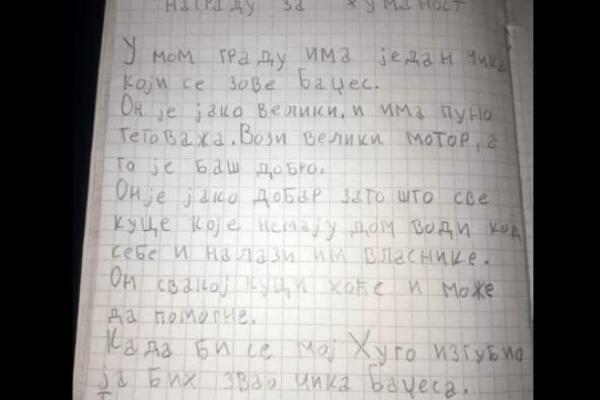 награду за хуманост
У мом граду има један чика
који се зове Баџес.
Он је јако велики, и има пуно
тетоважа. Вози велики мотор, а
то је баш добро.
Он је јако добар зато што све
куце које немају дом води код
себе и налази им власнике.
Он свакој куци хоће и може
да помогне.
Када би се мој Хуго изгубио
ја бих звао чика Баџеса.